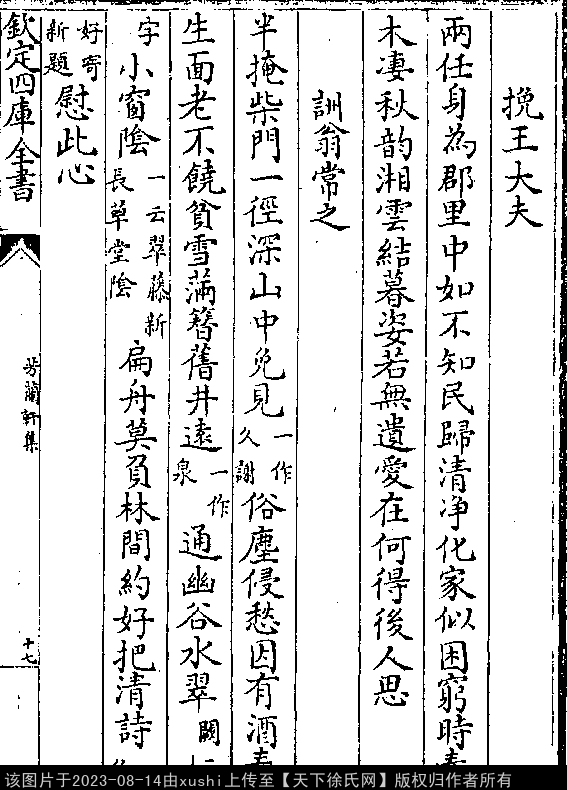 挽王大夫
兩任身為郡里中如不知民歸清净化家似困窮時
木凄秋韵湘雲結暮姿若無遺愛在何得後人思
訓翁常之
半掩柴門一徑深山中免見一作久謝俗塵侵愁因有酒
生面老不饒貧雪滿簪舊井遠一作泉通幽谷水翠闕
字小窗陰一云翠藤新長草堂陰扁舟莫負林間約好把清詩
好寄新題慰此心
欽定四庫全書
芳蘭軒集
十七
该图片于2023-08-14由xushi上传至【天下徐氏网】版权归作者所有